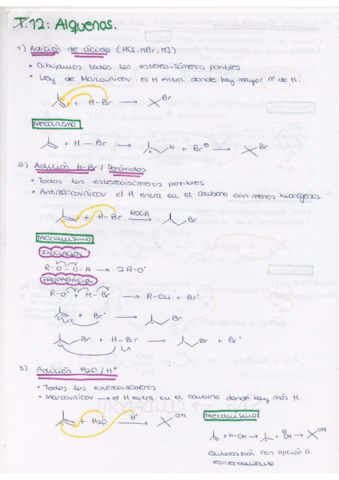 T.12: Alquenos.
1) Adición de ácido (HCl, HBr, HI)
• Dibujamos todos los estereoisómeros posibles
• Ley de Marcovnicov. el H entra donde hay mayor nº de H.
+ H-Br → Br
MECANISMO
+ H — Br → H + Br⊖ → Br
2) Adición H-Br / Peróxidos
• Todos los estereoisómeros posibles
• Antimarcovnicov el H entra en el carbono con menos hidrógenos
+ H-Br ROOR → Br
MECANISMO
INICIACIÓN
R-O-O-R → 2R-O·
PROPAGACIÓN
R-O· + H-Br → R-OH + Br·
+ Br· → Br
Br + H-Br → Br + Br·
3) Adición H2O / H+
• Todos los estereoisómeros
• Marcovnicov → el H entra en el carbono donde hay más H.
+ H2O H+ → OH
MECANISMO
+ H-OH → + OH → OH
Carbocatión con opción a
reordenamiento